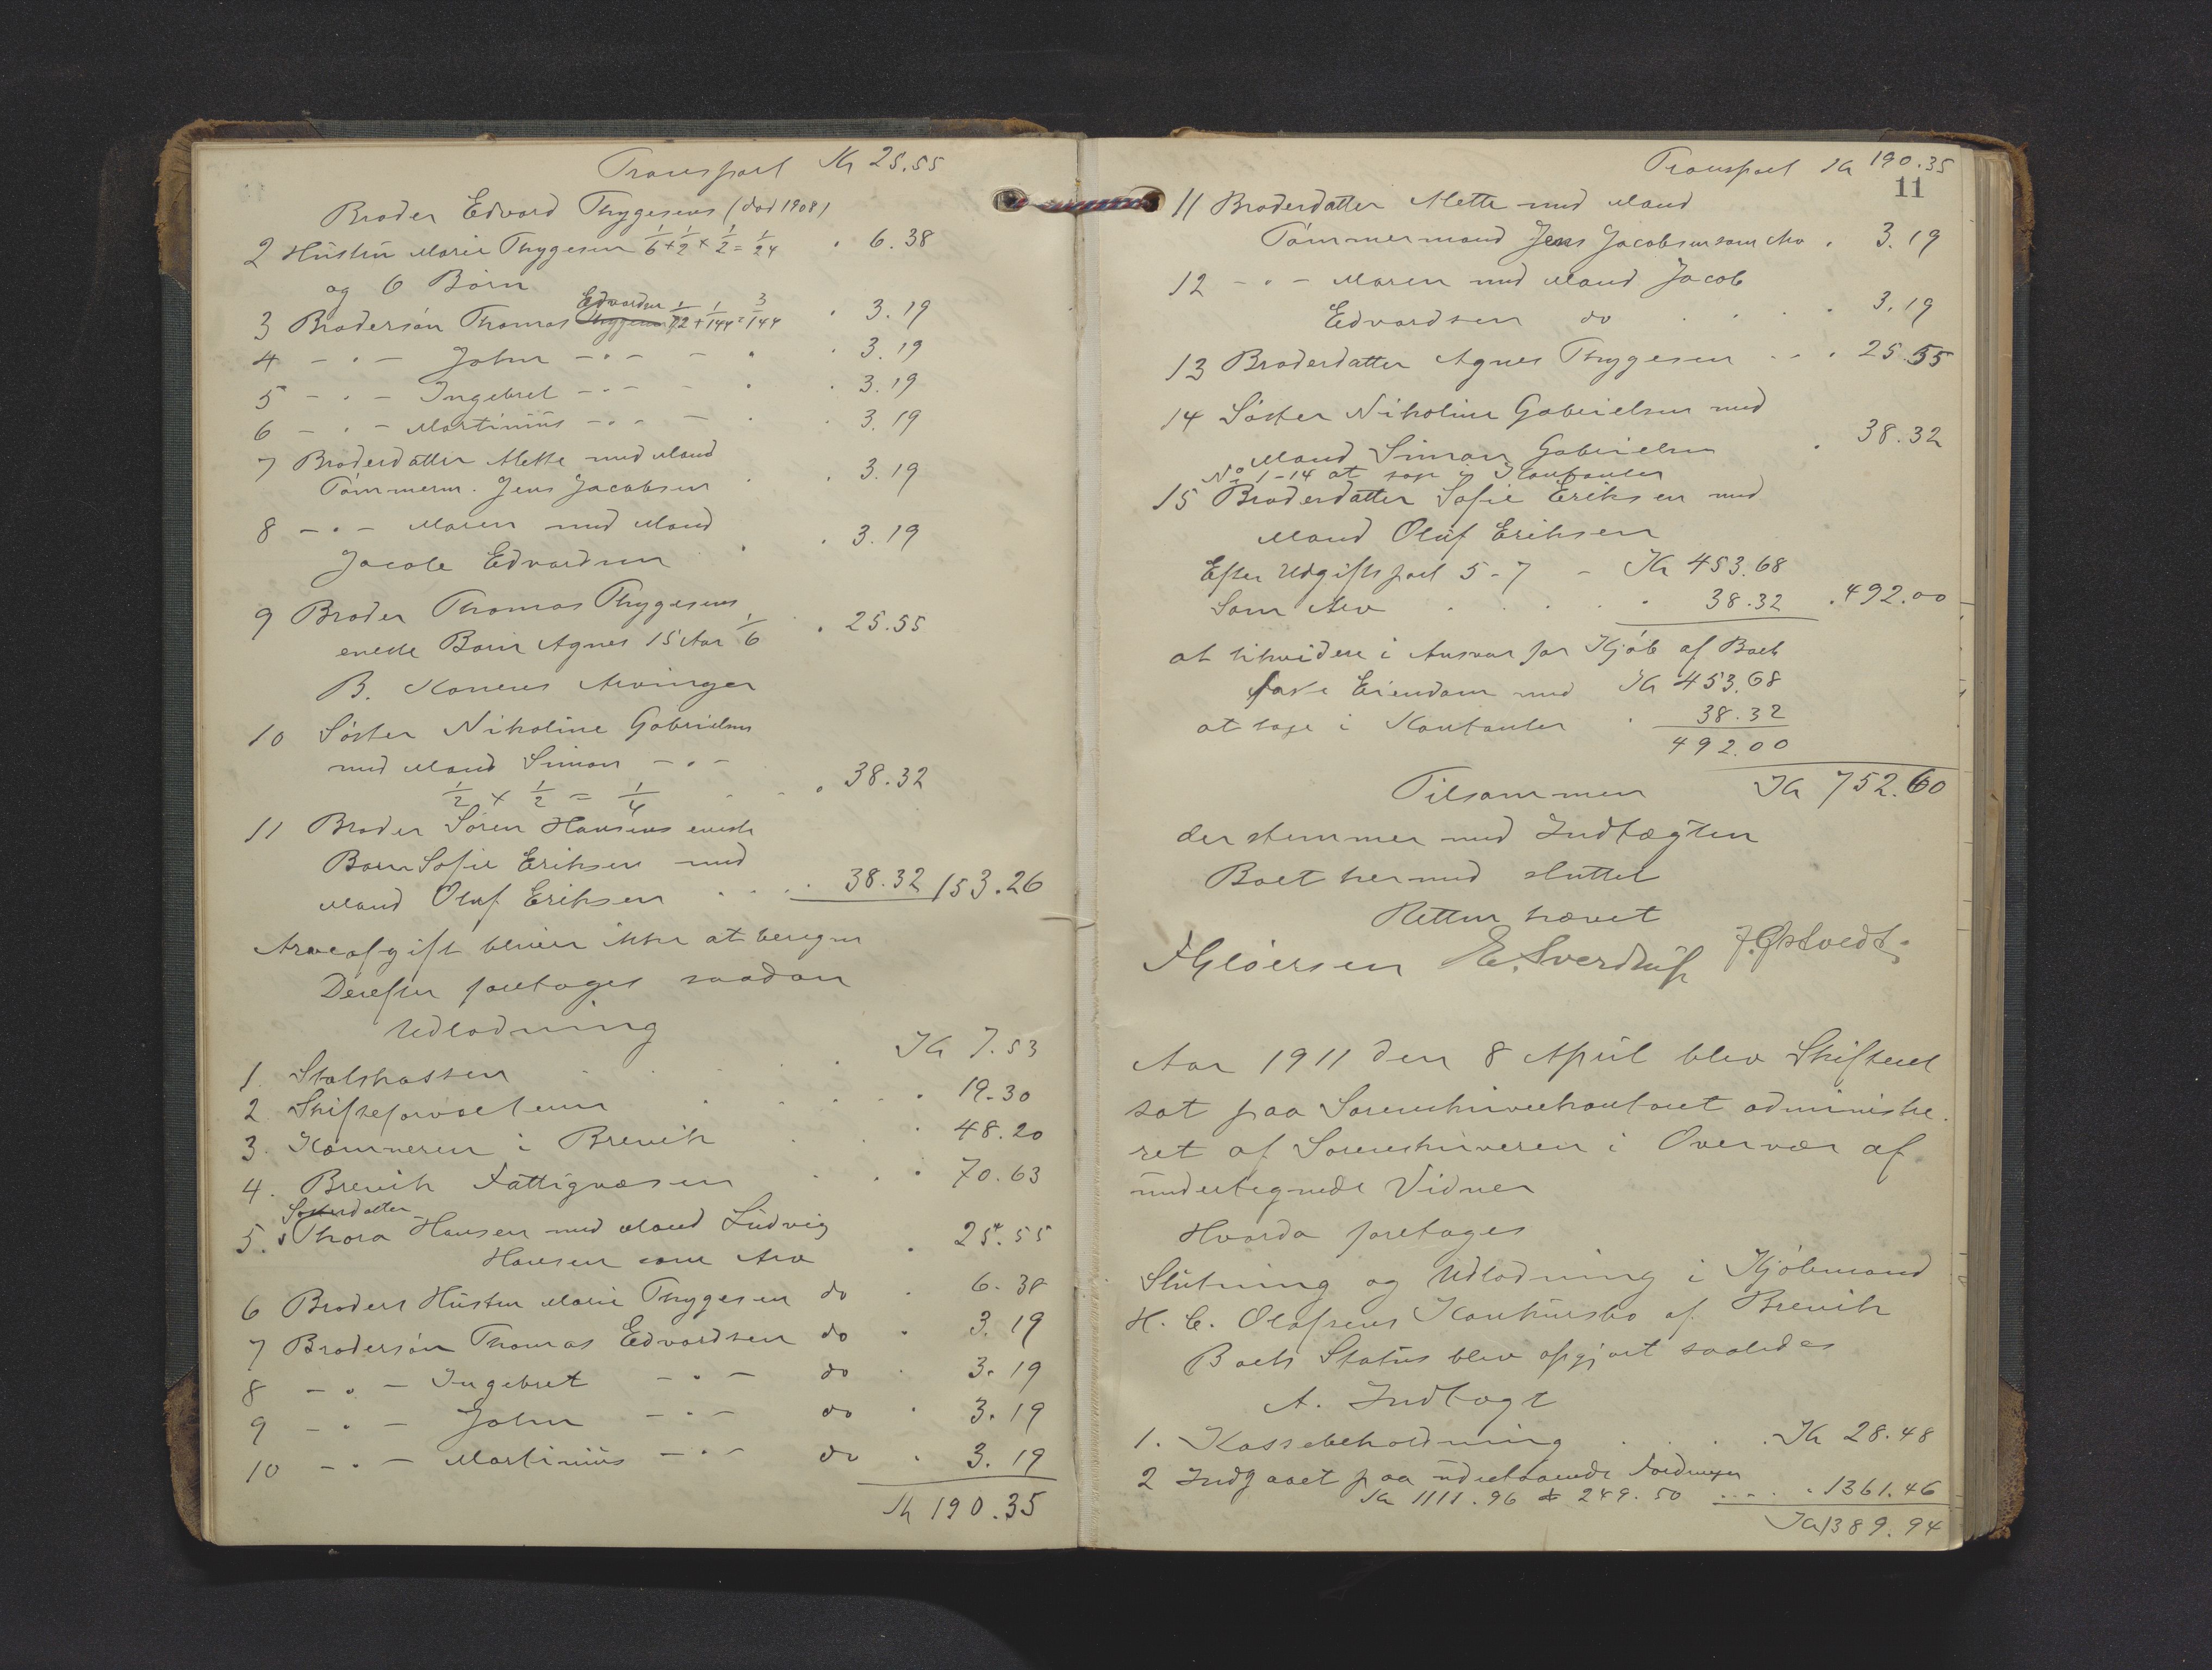 Transport Kr 25.55
Broder Edvard Thygesens (død 1908)
2 Hustru Marie Thygesen 1/6 + 1/2 × 1/2 = 1/24 " 6.38
og 6 Børn
Edvardsen
3 Brodersøn Thomas Thygesen 1/72 + 1/144 = 3/144 " 3.19
4 - " - John - " - - " " 3.19
5 - " - Ingebret - " - - " " 3.19
6 - " - Martinius - " - - " " 3.19
7 Broderdatter Mette med Mand
Tømmerm. Jens Jacobsen " " 3.19
8 - " - Maren med Mand
Jacob Edvardsen " " 3.19
9 Broder Thomas Thygesens
eneste Barn Agnes 15 Aar 1/6 " 25.55
B. Konens Arvinger
10 Søster Nikoline Gabrielsen
med Mand Simon - " -
1/2 × 1/2 = 1/4 " 38.32
11 Broder Søren Hansens eneste
Barn Sofie Eriksen med
Mand Oluf Eriksen " 38.32 153.26
Arveafgift bliver ikke at beregne
Derefter foretages saadan
Udlodning
1. Statskassen Kr 7.53
2 Skifteforvalteren " 19.30
3. Kæmneren i Brevik " 48.20
4. Brevik Fattigvæsen " 70.63
Søsterdatter
5. Thora Hansen med Mand Ludvig
Hansen som Arv " 25.55
6 Broders Hustru Marie Thygesen do " 6.38
7 Brodersøn Thomas Edvardsen do " 3.19
8 - " - Ingebret - " - do " 3.19
9 - " - John - " - do " 3.19
10 - " - Martinius - " - do " 3.19
Kr 190.35
Transport Kr 190.35
11
11 Broderdatter Mette med Mand
Tømmermand Jens Jacobsen som Arv " 3.19
12 - " - Maren med Mand Jacob
Edvardsen do " 3.19
13 Broderdatter Agnes Thygesen " 25.55
14 Søster Nikoline Gabrielsen med
Mand Simon Gabrielsen " 38.32
No 1-14 at tage i Kontanter
15 Broderdatter Sofie Eriksen med
Mand Oluf Eriksen
Efter Udgiftspost 5-7 - Kr 453.68
Som Arv " 38.32 " 492.00
at likvidere i Ansvar for Kjøb af Boets
faste Eiendom med Kr 453.68
at tage i Kontanter " 38.32
492.00
Tilsammen Kr 752.60
der stemmer med Indtægten
Boet hermed sluttet
Retten hævet
F Gløersen E. Sverdrup J. Østvedt.
Aar 1911 den 8 April blev Skifteret
sat paa Sorenskriverkontoret administre-
ret af Sorenskriveren i Overvær af
undertegnede Vidner
Hvorda foretages
Slutning og Udlodning i Kjøbmand
H. C. Olafsens Konkursbo af Brevik
Boets Status blev opgjort saaledes
A. Indtægt
1. Kassebeholdning Kr 28.48
2 Indgaaet paa udestaaende Fordringer
Kr 1111.96 + 249.50 " 1361.46
Kr 1389.94